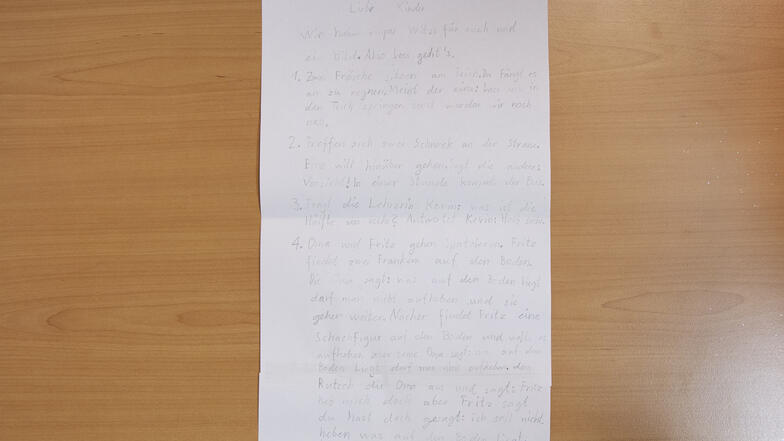 Liebe Kinder
Wir haben einpar Witze für euch und
ein bild. Also los geht's.
1. Zwei Frösche sitzen am Teich. Da fängt es
an zu regnen. Meint der eine: in
den Teich springen sonst werden wir noch
nass.
2. Treffen sich zwei Schneck an der Strasse.
Eine will hinüber gehen. die andere:
Vorsicht! In einer Stunde kommt der Bus.
3. Fragt die Lehrerin Kevin: was ist die
Hälfte von Antwortet Kevin:
4. Oma und Fritz gehen spatzieren. Fritz
findet zwei Franken auf den Boden.
Die Oma sagt: was auf den Boden liegt
darf man nicht aufheben und sie
gehen weiter. Nacher findet Fritz eine
Schachfigur auf den Boden und will es
aufheben aber seine Oma sagt: was auf den
Boden liegt darf man nicht aufheben. dan
Rutsch die Oma aus und sagt: Fritz
heb mich doch aber Fritz sagt
du hast doch gesagt: ich soll nicht
heben was auf den Boden liegt